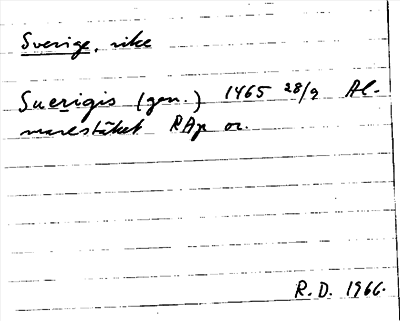 Sverige, rike
Suerigis (gen.) 1465 28/9 Al-
marestäket RAp or.
R.D. 1966.